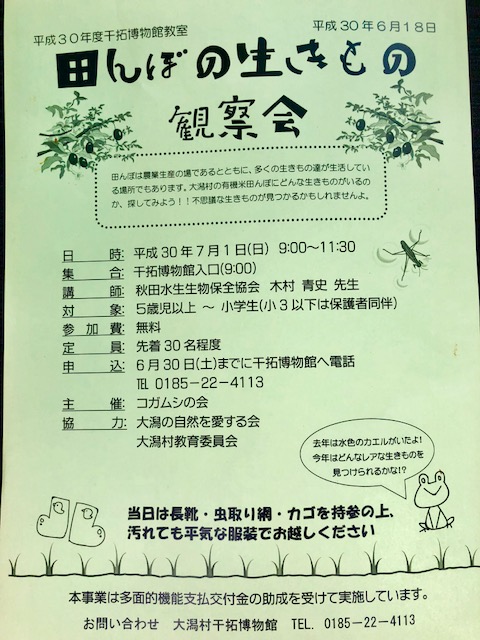 平成30年度干拓博物館教室
平成30年6月18日
田んぼの生きもの
観察会
田んぼは農業生産の場であるとともに、多くの生きもの達が生活してい
る場所でもあります。大潟村の有機米田んぼにどんな生きものがいるの
か、探してみよう!!不思議な生きものが見つかるかもしれませんよ。
日時: 平成30年7月1日(日) 9:00～11:30
集合: 干拓博物館入口(9:00)
講師: 秋田水生生物保全協会 木村 青史 先生
対象: 5歳児以上 ～ 小学生(小3以下は保護者同伴)
参加費: 無料
定員: 先着30名程度
申込: 6月30日(土)までに干拓博物館へ電話
℡ 0185-22-4113
主催: コガムシの会
協力: 大潟の自然を愛する会
大潟村教育委員会
去年は水色のカエルがいたよ!
今年はどんなレアな生きものを
見つけられるかな!?
当日は長靴・虫取り網・カゴを持参の上、
汚れても平気な服装でお越しください
本事業は多面的機能支払交付金の助成を受けて実施しています。
お問い合わせ 大潟村干拓博物館 TEL. 0185-22-4113